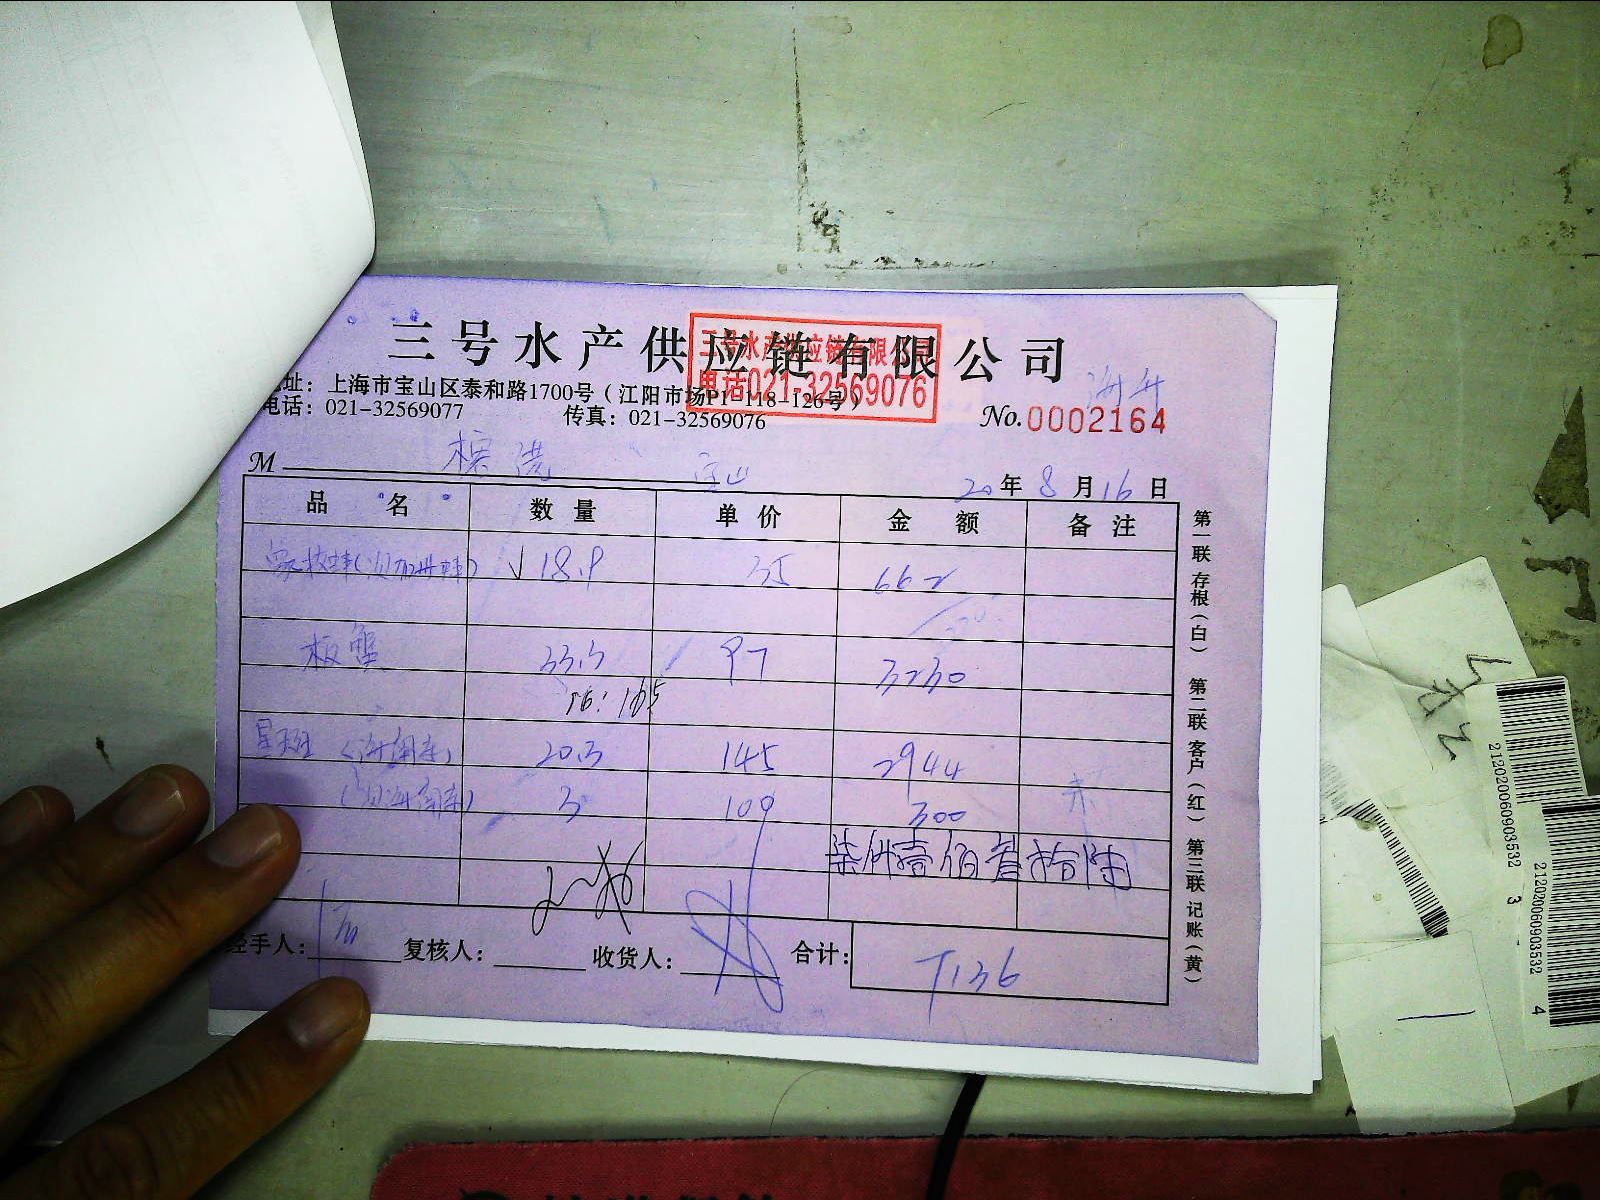 三号水产供应链有限公司
三号水产供应链有限公司
电话021-32569076
地址：上海市宝山区泰和路1700号（江阳市场P1-118-126号）
电话：021-32569077 传真：021-32569076
No.0002164
M 宝山 20年8月16日
品 名 数 量 单 价 金 额 备 注
18.9 35 662
板蟹 33.3 97 3230
16:165
星斑 20.3 145 2944
3 109 300
柒仟壹佰叁拾陆
经手人： 复核人： 收货人： 合计： 7136
第一联 存根（白） 第二联 客户（红） 第三联 记账（黄）
212020060903532 3
212020060903532 4